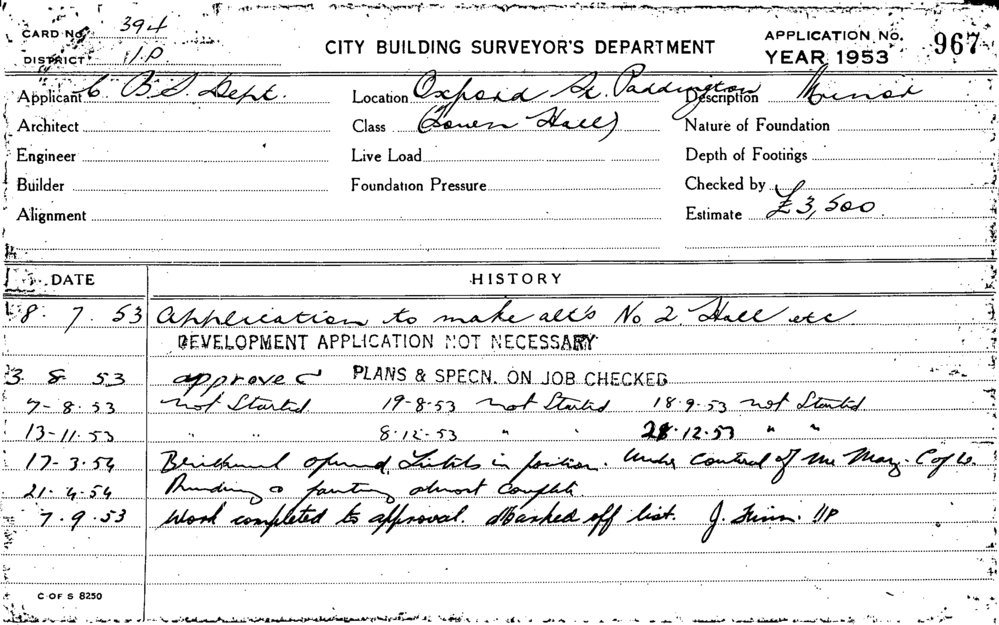 CARD No. 394
DISTRICT 11.P
CITY BUILDING SURVEYOR'S DEPARTMENT
APPLICATION No. 967
YEAR 1953
Applicant C B S Dept. Location Oxford St. Paddington Description Minor
Architect Class (Town Hall) Nature of Foundation
Engineer Live Load Depth of Footings
Builder Foundation Pressure Checked by
Alignment Estimate £3,500
DATE HISTORY
8. 7. 53 Application to make alts No 2 Hall etc
DEVELOPMENT APPLICATION NOT NECESSARY
3 8 53 approved PLANS & SPECN. ON JOB CHECKED
7-8-53 not Started 19-8-53 not Started 18.9.53 not Started
13-11-53 " " 8-12-53 " " 28.12.53 " "
17-3-54 opened Lintels in position. Under Control of Mr
21.4.54 & painting almost complete.
7.9.53 Work completed to approval. Marked off list. J. 11P
C OF S 8250